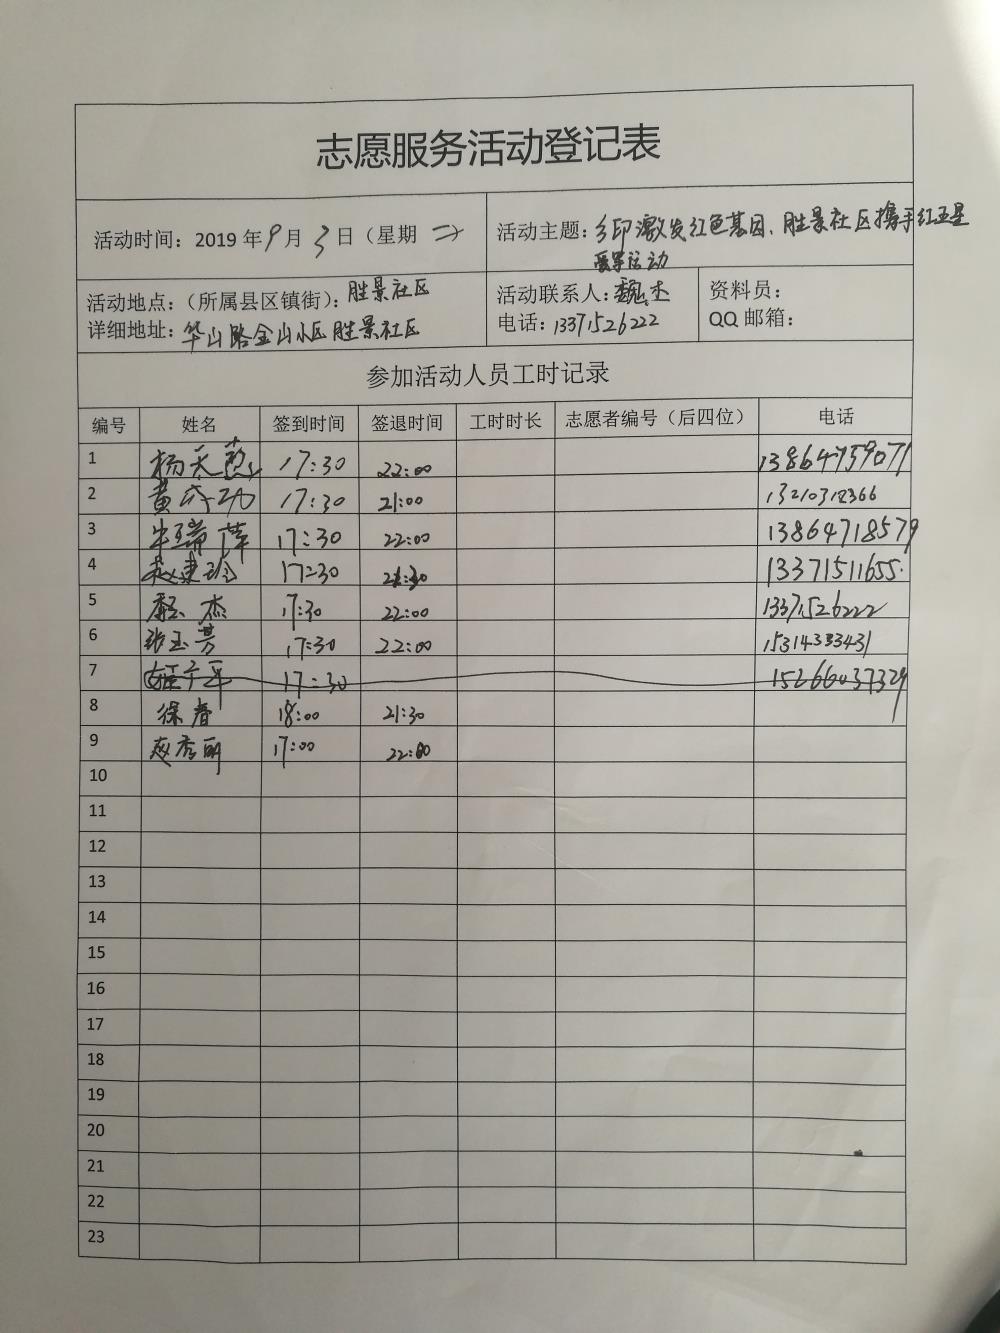 志愿服务活动登记表
活动时间：2019年9月3日（星期二
活动主题：乡印激发红色基因、胜景社区携手红五星
活动
活动地点：（所属县区镇街）：胜景社区
详细地址：华山路金山小区胜景社区
活动联系人：魏杰
电话：13371526222
资料员：
QQ邮箱：
参加活动人员工时记录
编号 姓名 签到时间 签退时间 工时时长 志愿者编号（后四位） 电话
1 杨天 17:30 22:00 13864759071
2 黄 17:30 21:00
3 牛瑞萍 17:30 22:00 13864718579
4 赵建玲 17:30 21:30 13371511655
5 魏杰 17:30 22:00 13371526222
6 张玉芳 17:30 22:00 15314333431
7 平 17:30 15266037329
8 徐春 18:00 21:30
9 赵秀丽 17:00 22:00
10
11
12
13
14
15
16
17
18
19
20
21
22
23